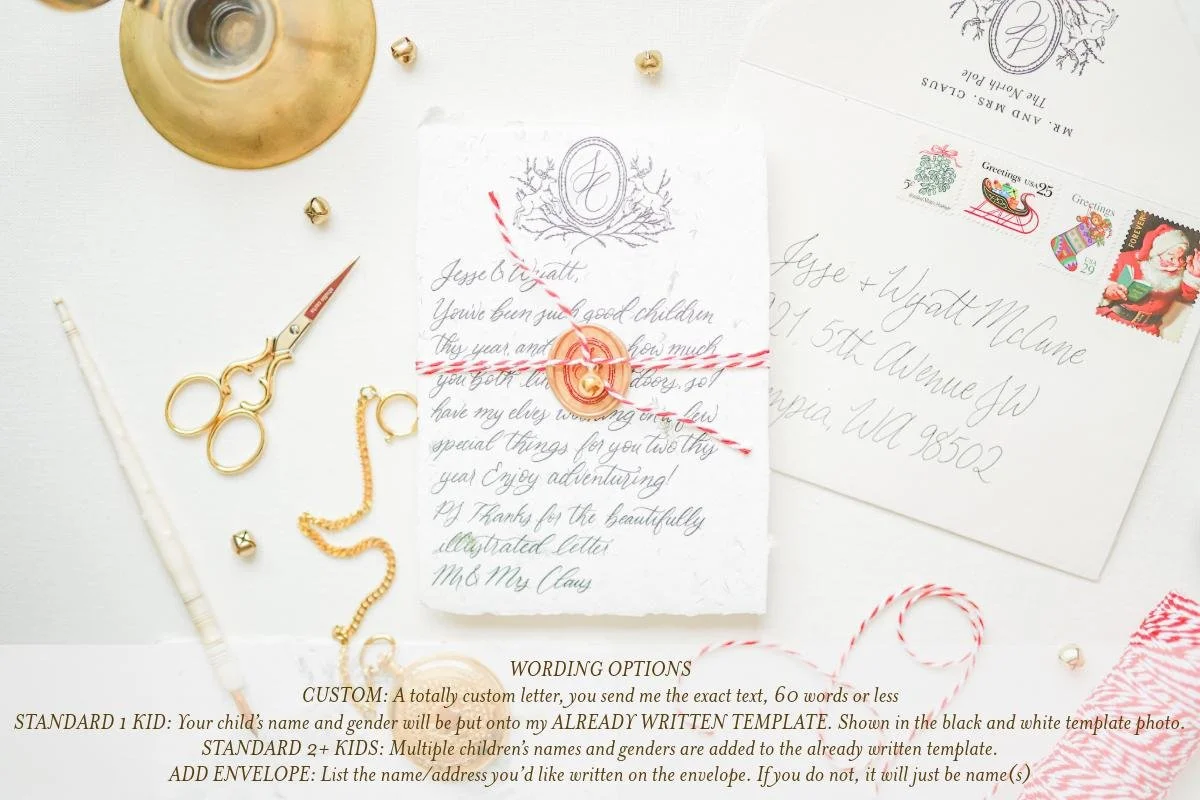 Jesse & Wyatt,
You've been such good children
this year, and how much
you both doors, so I
have my elves working on a few
special things for you two this
year Enjoy adventuring!
PS Thanks for the beautifully
illustrated letter
Mr & Mrs Claus
MR. AND MRS. CLAUS
The North Pole
Greetings USA 25
Greetings
USA
29
FOREVER
Jesse + Wyatt McCune
21 5th Avenue SW
mpia, WA 98502
WORDING OPTIONS
CUSTOM: A totally custom letter, you send me the exact text, 60 words or less
STANDARD 1 KID: Your child's name and gender will be put onto my ALREADY WRITTEN TEMPLATE. Shown in the black and white template photo.
STANDARD 2+ KIDS: Multiple children's names and genders are added to the already written template.
ADD ENVELOPE: List the name/address you'd like written on the envelope. If you do not, it will just be name(s)